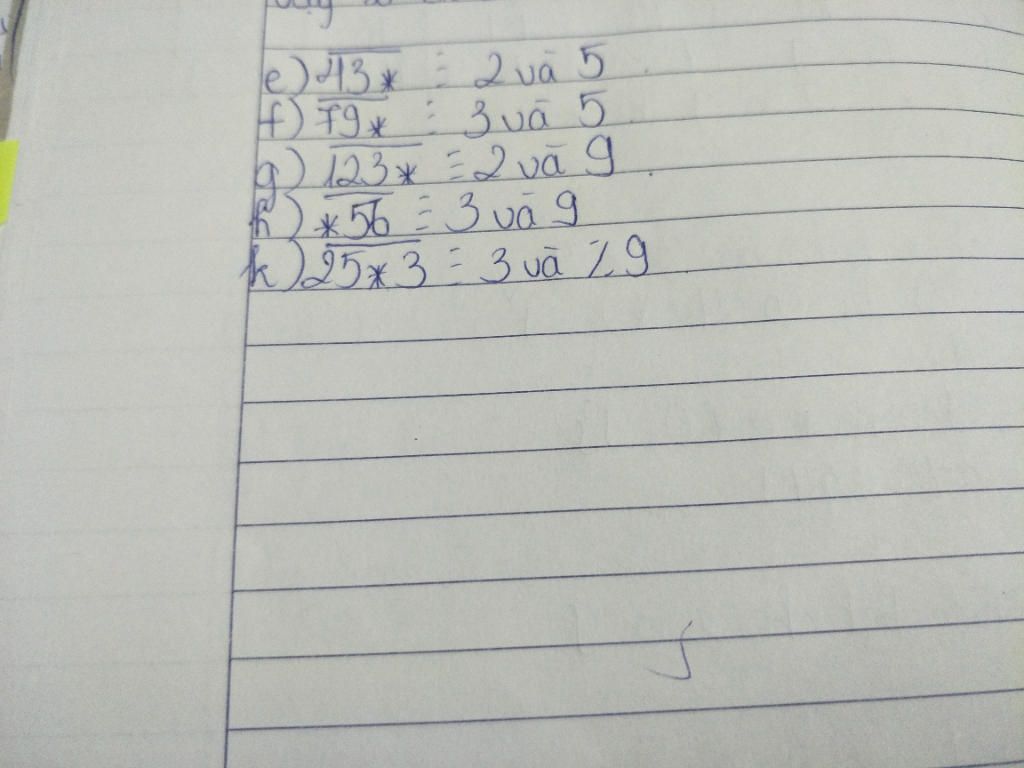 e) 43* ⋮ 2 và 5
f) 79* ⋮ 3 và 5
g) 123* ⋮ 2 và 9
h) *56 ⋮ 3 và 9
k) 25*3 ⋮ 3 và ⋮̸ 9